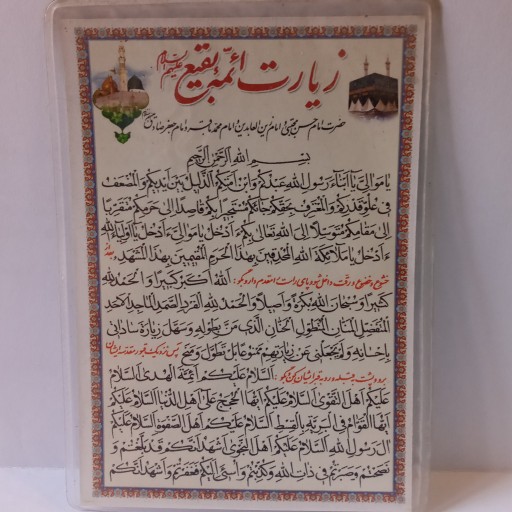 زیارت ائمّه بقیع علیهم السلام
حضرت امام حسن مجتبی و امام زین العابدین و امام محمد باقر و امام جعفر صادق
بِسْمِ اللهِ الرَّحْمٰنِ الرَّحیمِ
یا مَوالِیَّ یا اَبْناءَ رَسُولِ اللهِ عَبْدُکُمْ وَابْنُ اَمَتِکُمُ الذَّلیلُ بَیْنَ اَیْدیکُمْ وَالْمُضْعِفُ
فی عُلُوِّ قَدْرِکُمْ وَالْمُعْتَرِفُ بِحَقِّکُمْ جاءَکُمْ مُسْتَجیراً بِکُمْ قاصِداً اِلی حَرَمِکُمْ مُتَقَرِّباً
اِلی مَقامِکُمْ مُتَوَسِّلاً اِلَی اللهِ تَعالی بِکُمْ ءَاَدْخُلُ یا مَوالِیَّ ءَاَدْخُلُ یا اَوْلِیاءَ اللهِ
ءَاَدْخُلُ یا مَلائِکَةَ اللهِ الْمُحْدِقینَ بِهذَا الْحَرَمِ الْمُقیمینَ بِهذَا الْمَشْهَدِ و بعد از
خشوع و خضوع و رقت داخل شو و پای راست را مقدم دار و بگو: اَللهُ اَکْبَرُ کَبیراً وَ الْحَمْدُ لِلّهِ
کَثیراً وَ سُبْحانَ اللهِ بُکْرَةً وَ اَصیلاً وَ الْحَمْدُ لِلّهِ الْفَرْدِ الصَّمَدِ الْماجِدِ الْاَحَدِ
الْمُتَفَضِّلِ الْمَنّانِ الْمُتَطَوِّلِ الْحَنّانِ الَّذی مَنَّ بِطَوْلِهِ وَ سَهَّلَ زِیارَةَ ساداتی
بِاِحْسانِهِ وَ لَمْ یَجْعَلْنی عَنْ زِیارَتِهِمْ مَمْنُوعاً بَلْ تَطَوَّلَ وَ مَنَحَ پس نزدیک قبور مقدسه ایشان
برو و پشت به قبله و رو به قبر ایشان کن و بگو: اَلسَّلامُ عَلَیْکُمْ اَئِمَّةَ الْهُدی اَلسَّلامُ
عَلَیْکُمْ اَهْلَ التَّقْوی اَلسَّلامُ عَلَیْکُمْ اَیُّهَا الْحُجَجُ عَلی اَهْلِ الدُّنْیا اَلسَّلامُ عَلَیْکُمْ
اَیُّهَا الْقُوّامُ فِی الْبَرِیَّةِ بِالْقِسْطِ اَلسَّلامُ عَلَیْکُمْ اَهْلَ الصَّفْوَةِ اَلسَّلامُ عَلَیْکُمْ
الَ رَسُولِ اللهِ اَلسَّلامُ عَلَیْکُمْ اَهْلَ النَّجْوی اَشْهَدُ اَنَّکُمْ قَدْ بَلَّغْتُمْ وَ
نَصَحْتُمْ وَ صَبَرْتُمْ فی ذاتِ اللهِ وَ کُذِّبْتُمْ وَ اُسیءَ اِلَیْکُمْ فَغَفَرْتُمْ وَ اَشْهَدُ اَنَّکُمُ